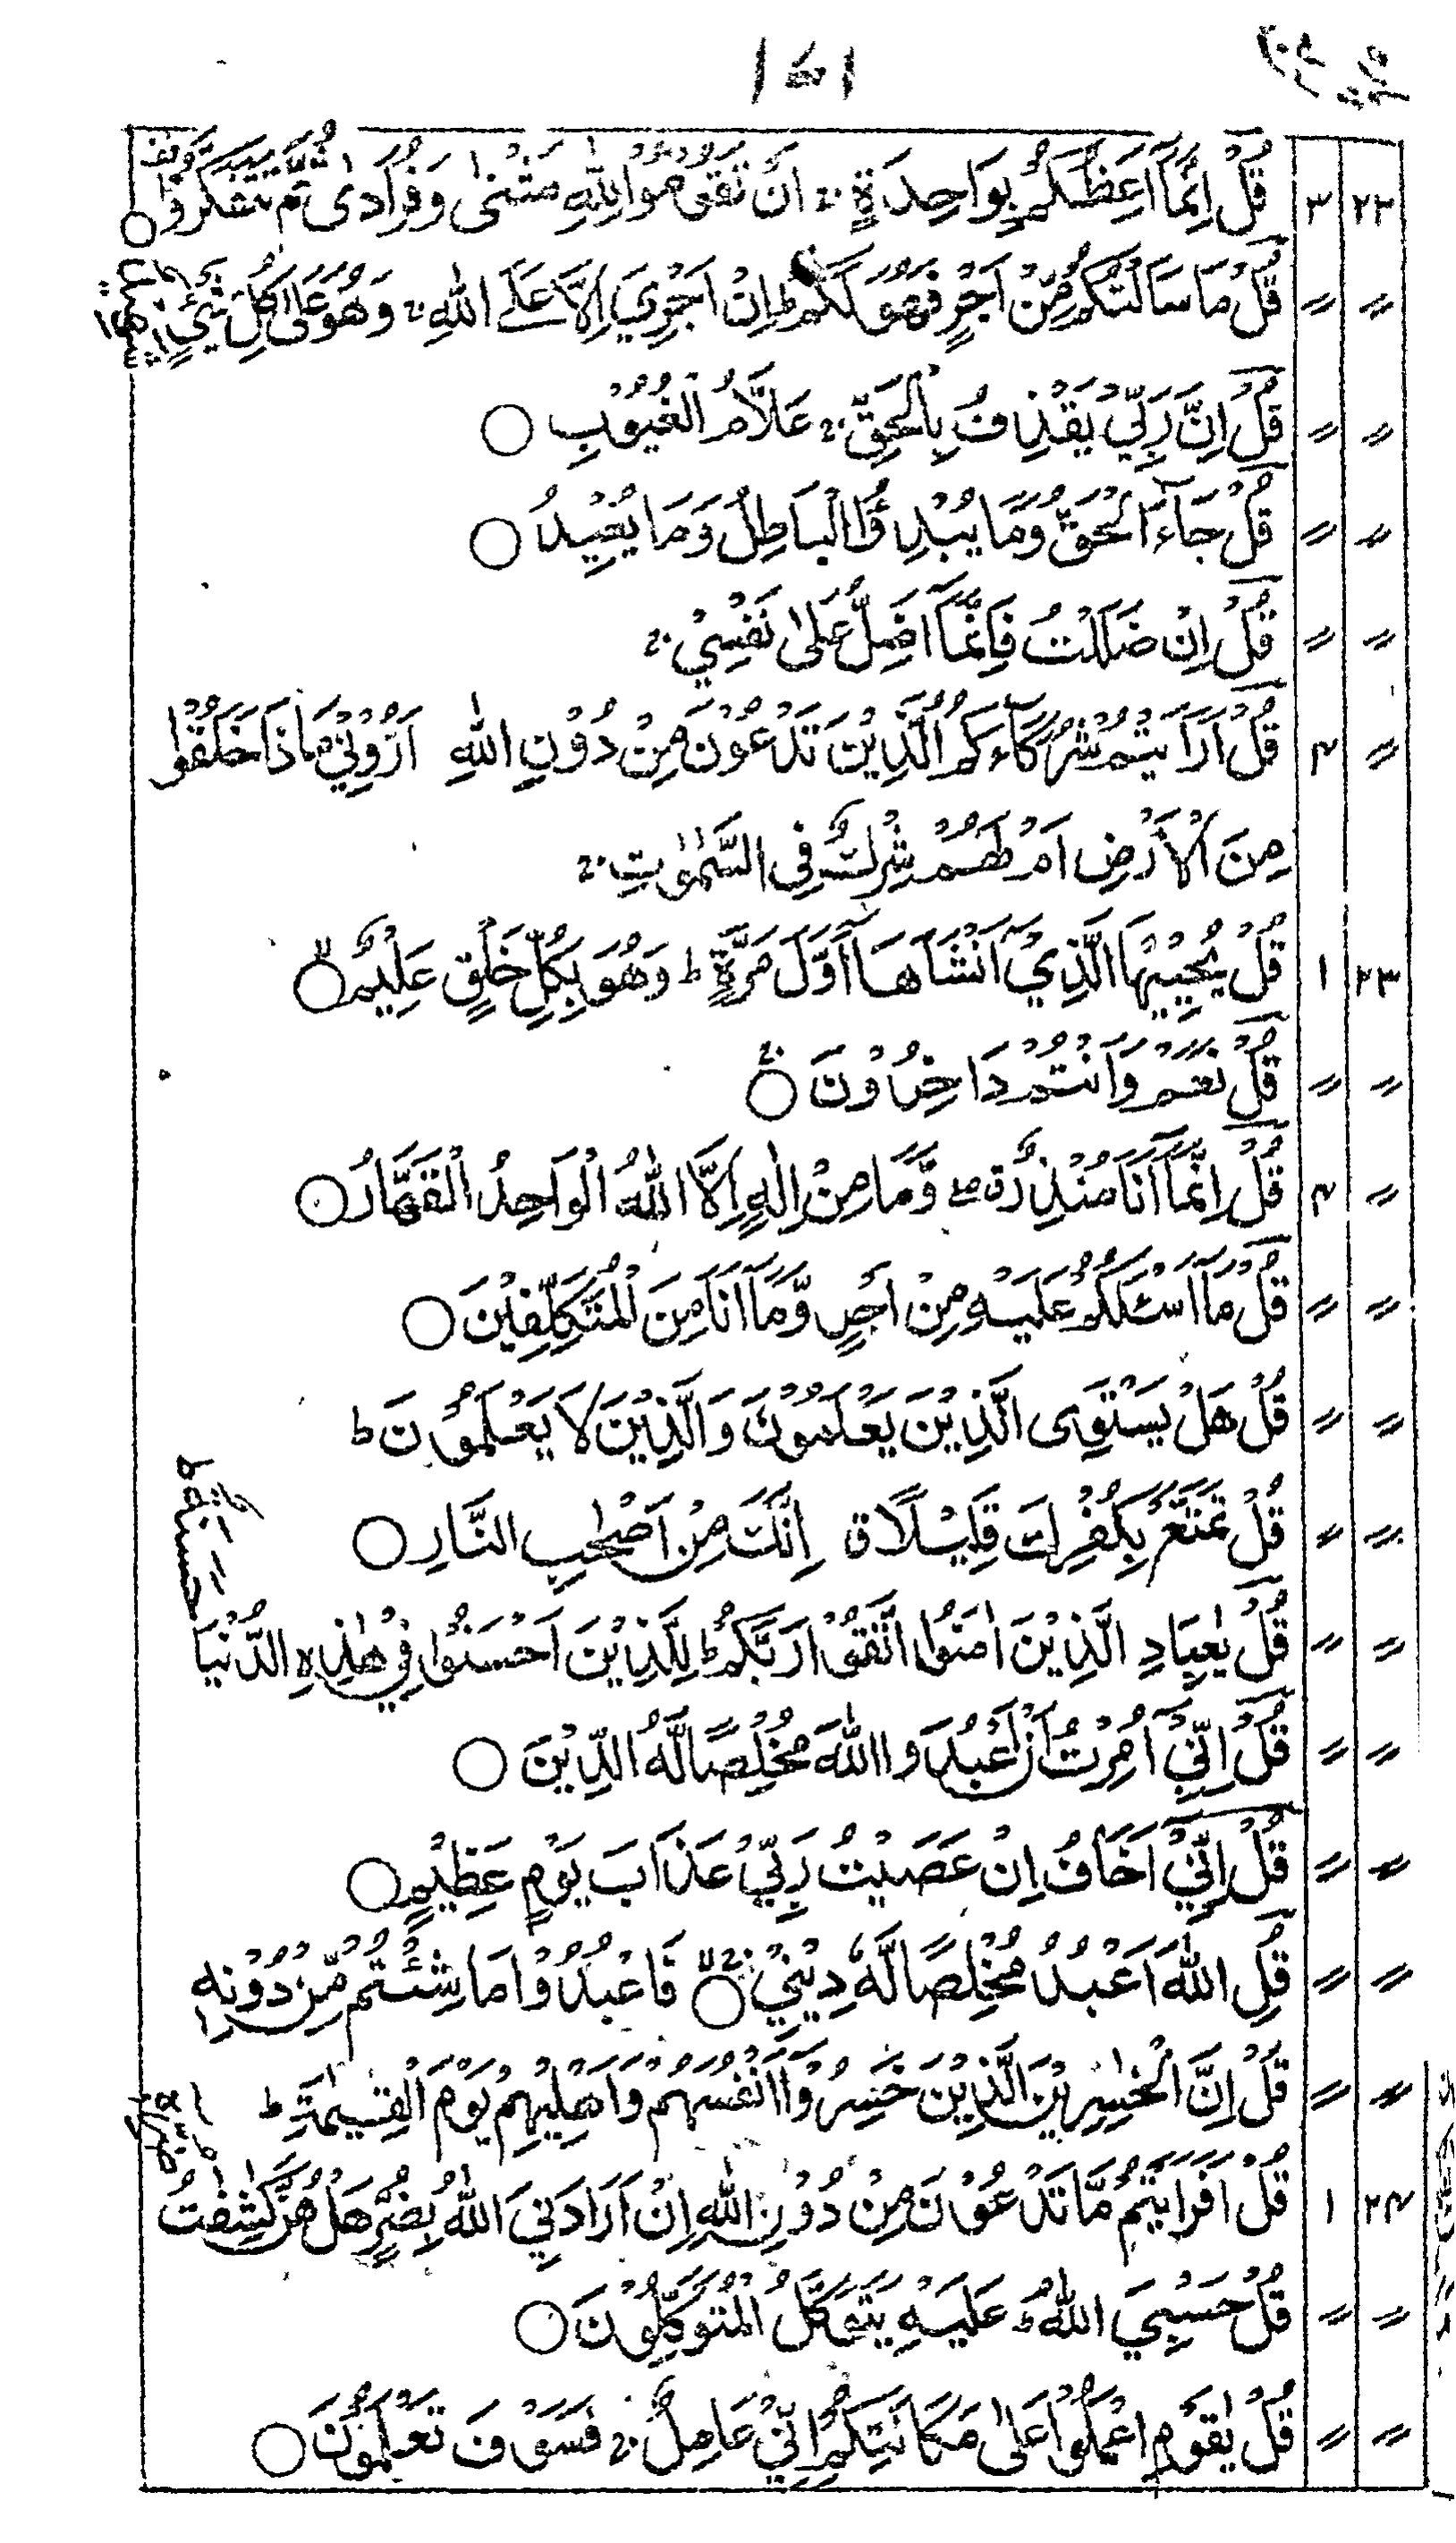 ۱۶۱
۲۳ ۳ قُلْ اِنَّمَآ اَعِظُكُمْ بِوَاحِدَةٍ ۚ اَنْ تَقُوْمُوْا لِلّٰهِ مَثْنٰى وَفُرَادٰى ثُمَّ تَتَفَكَّرُوْا ○
〃 〃 قُلْ مَا سَاَلْتُكُمْ مِّنْ اَجْرٍ فَهُوَ لَكُمْ ؕ اِنْ اَجْرِيَ اِلَّا عَلَى اللّٰهِ ۚ وَهُوَ عَلٰى كُلِّ شَيْءٍ
〃 〃 قُلْ اِنَّ رَبِّيْ يَقْذِفُ بِالْحَقِّ ۚ عَلَّامُ الْغُيُوْبِ ○
〃 〃 قُلْ جَآءَ الْحَقُّ وَمَا يُبْدِئُ الْبَاطِلُ وَمَا يُعِيْدُ ○
〃 〃 قُلْ اِنْ ضَلَلْتُ فَاِنَّمَآ اَضِلُّ عَلٰى نَفْسِيْ ۚ
〃 ۴ قُلْ اَرَاَيْتُمْ شُرَكَآءَكُمُ الَّذِيْنَ تَدْعُوْنَ مِنْ دُوْنِ اللّٰهِ اَرُوْنِيْ مَاذَا خَلَقُوْا
مِنَ الْاَرْضِ اَمْ لَهُمْ شِرْكٌ فِي السَّمٰوٰتِ ۚ
۲۳ ۱ قُلْ يُحْيِيْهَا الَّذِيْٓ اَنْشَاَهَآ اَوَّلَ مَرَّةٍ ؕ وَهُوَ بِكُلِّ خَلْقٍ عَلِيْمُ ○
〃 〃 قُلْ نَعَمْ وَاَنْتُمْ دَاخِرُوْنَ ○
〃 ۴ قُلْ اِنَّمَآ اَنَا مُنْذِرٌ ۖ وَّمَا مِنْ اِلٰهٍ اِلَّا اللّٰهُ الْوَاحِدُ الْقَهَّارُ ○
〃 〃 قُلْ مَآ اَسْـَٔلُكُمْ عَلَيْهِ مِنْ اَجْرٍ وَّمَآ اَنَا مِنَ الْمُتَكَلِّفِيْنَ ○
〃 〃 قُلْ هَلْ يَسْتَوِى الَّذِيْنَ يَعْلَمُوْنَ وَالَّذِيْنَ لَا يَعْلَمُوْنَ ؕ
〃 〃 قُلْ تَمَتَّعْ بِكُفْرِكَ قَلِيْلًا ق اِنَّكَ مِنْ اَصْحٰبِ النَّارِ ○
〃 〃 قُلْ يٰعِبَادِ الَّذِيْنَ اٰمَنُوا اتَّقُوْا رَبَّكُمْ ؕ لِلَّذِيْنَ اَحْسَنُوْا فِيْ هٰذِهِ الدُّنْيَا حَسَنَةٌ ؕ
〃 〃 قُلْ اِنِّيْٓ اُمِرْتُ اَنْ اَعْبُدَ وا اللّٰهَ مُخْلِصًا لَّهُ الدِّيْنَ ○
〃 〃 قُلْ اِنِّيْٓ اَخَافُ اِنْ عَصَيْتُ رَبِّيْ عَذَابَ يَوْمٍ عَظِيْمٍ ○
〃 〃 قُلِ اللّٰهَ اَعْبُدُ مُخْلِصًا لَّهٗ دِيْنِيْ ○ فَاعْبُدُوْا مَا شِئْتُمْ مِّنْ دُوْنِهٖ
〃 〃 قُلْ اِنَّ الْخٰسِرِيْنَ الَّذِيْنَ خَسِرُوْٓا اَنْفُسَهُمْ وَاَهْلِيْهِمْ يَوْمَ الْقِيٰمَةِ ؕ
۲۴ ۱ قُلْ اَفَرَاَيْتُمْ مَّا تَدْعُوْنَ مِنْ دُوْنِ اللّٰهِ اِنْ اَرَادَنِيَ اللّٰهُ بِضُرٍّ هَلْ هُنَّ كٰشِفٰتُ ضُرِّهٖٓ
〃 〃 قُلْ حَسْبِيَ اللّٰهُ ؕ عَلَيْهِ يَتَوَكَّلُ الْمُتَوَكِّلُوْنَ ○
〃 〃 قُلْ يٰقَوْمِ اعْمَلُوْا عَلٰى مَكَانَتِكُمْ اِنِّيْ عَامِلٌ ۚ فَسَوْفَ تَعْلَمُوْنَ ○